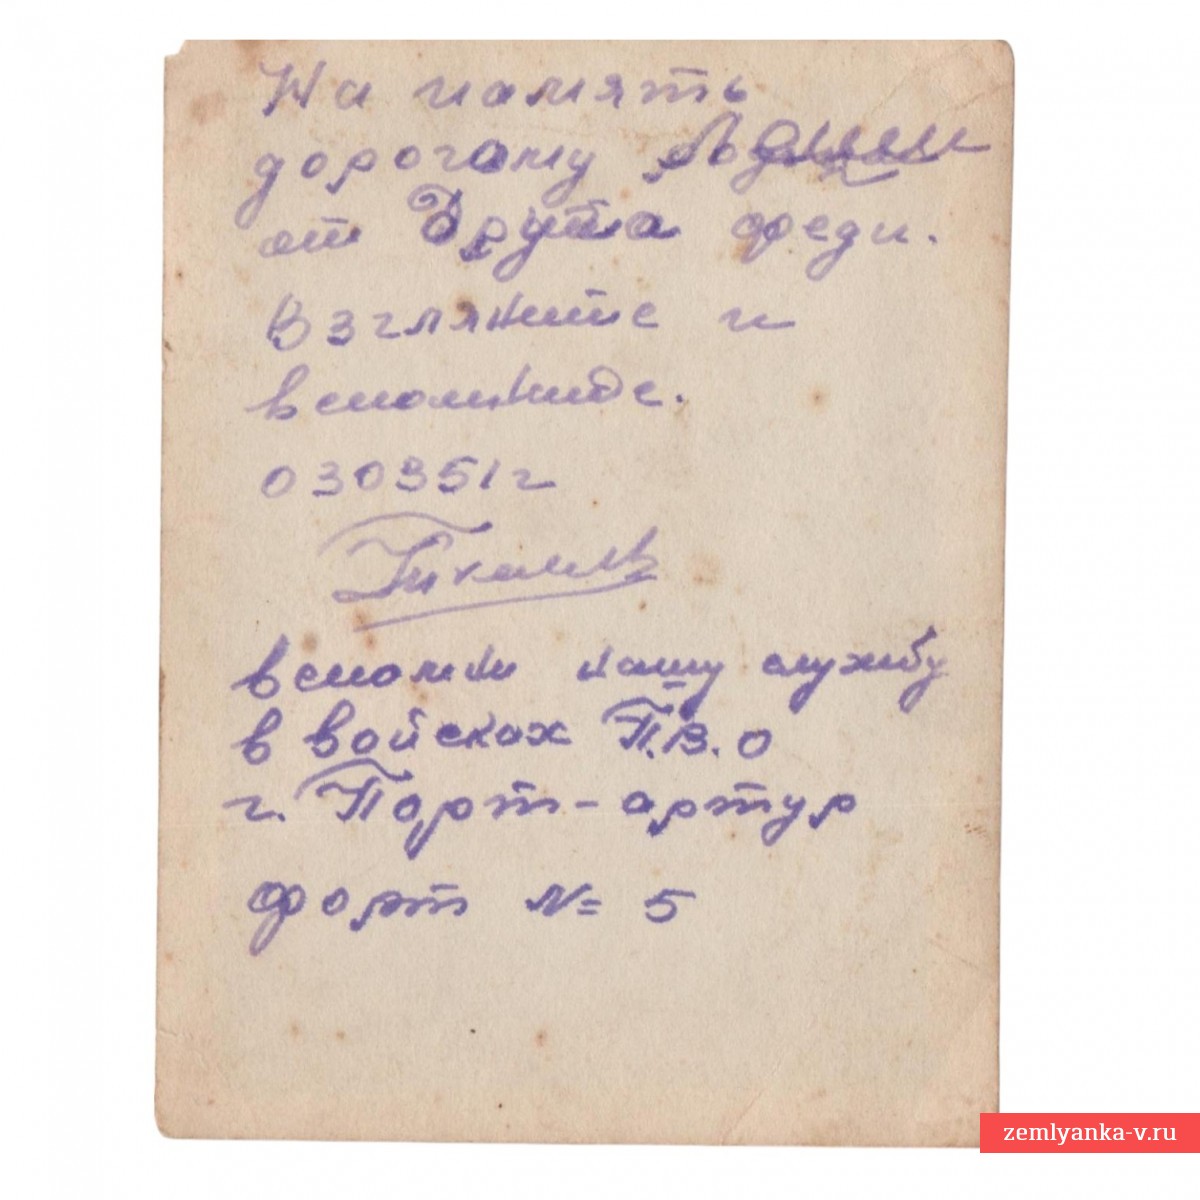 На память
дорогому
от Друга феди.
Взгляните и
вспомниде.
030351г
вспомни нашу службу
в войсках П.В.О
г. Порт-артур
форт № 5
zemlyanka-v.ru